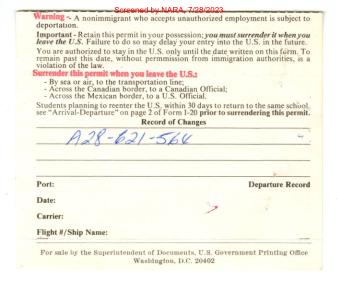 Screened by NARA, 7/28/2023
Warning - A nonimmigrant who accepts unauthorized employment is subject to
deportation.
Important - Retain this permit in your possession; you must surrender it when you
leave the U.S. Failure to do so may delay your entry into the U.S. in the future.
You are authorized to stay in the U.S. only until the date written on this form. To
remain past this date, without permmission from immigration authorities, is a
violation of the law.
Surrender this permit when you leave the U.S.:
- By sea or air, to the transportation line;
- Across the Canadian border, to a Canadian Official;
- Across the Mexican border, to a U.S. Official.
Students planning to reenter the U.S. within 30 days to return to the same school,
see "Arrival-Departure" on page 2 of Form I-20 prior to surrendering this permit.
Record of Changes
A28-621-564
Port: Departure Record
Date:
Carrier:
Flight #/Ship Name:
For sale by the Superintendent of Documents, U.S. Government Printing Office
Washington, D.C. 20402